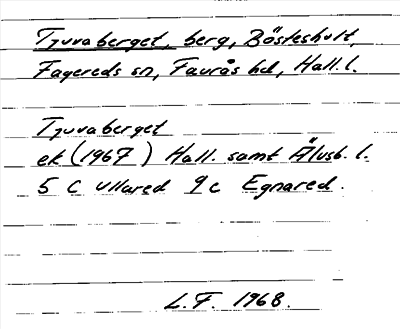 Tjuvaberget, berg, Bösteshult,
Fagereds sn, Faurås hd, Hall. l.
Tjuvaberget
ek (1967) Hall. samt Älvsb. l.
5 C Ullared 9 c Egnared.
L.F. 1968.